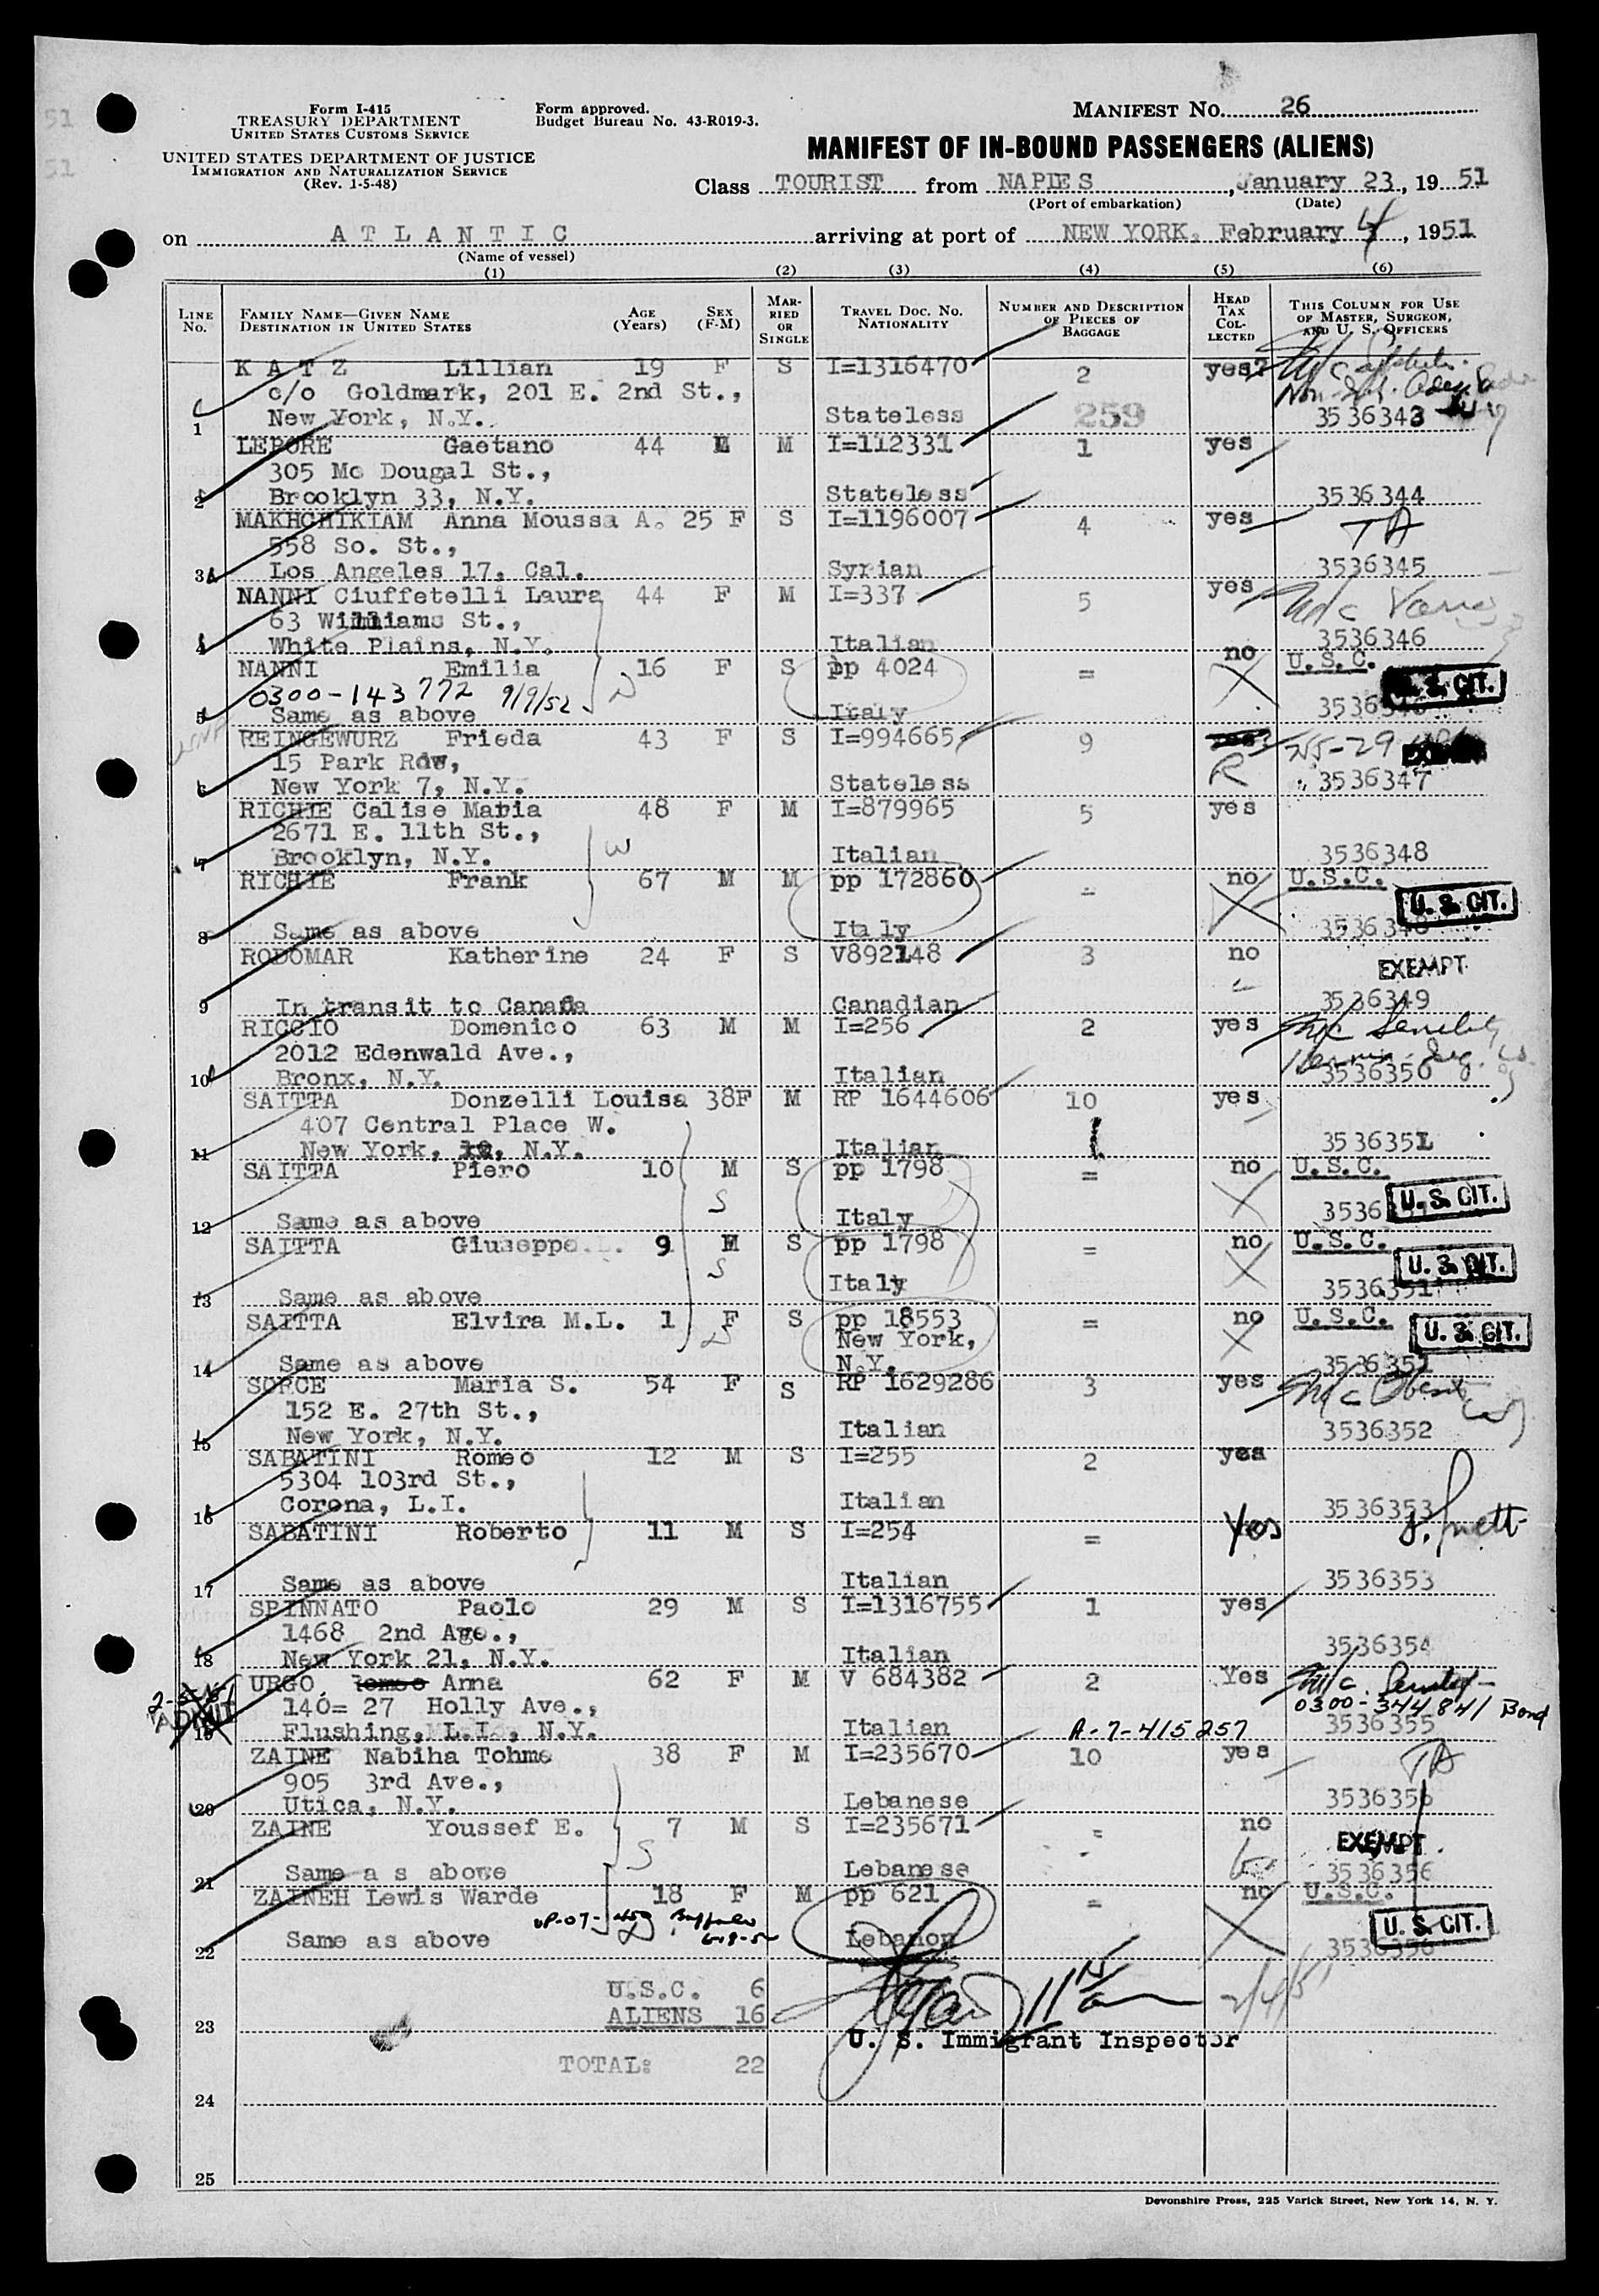 Form I-415
TREASURY DEPARTMENT
UNITED STATES CUSTOMS SERVICE
UNITED STATES DEPARTMENT OF JUSTICE
IMMIGRATION AND NATURALIZATION SERVICE
(Rev. 1-5-48)
Form approved.
Budget Bureau No. 43-R019-3.
MANIFEST NO. 26
MANIFEST OF IN-BOUND PASSENGERS (ALIENS)
Class TOURIST from NAPLES, January 23, 1951
(Port of embarkation) (Date)
on ATLANTIC arriving at port of NEW YORK, February 4, 1951
(Name of vessel)
(1) (2) (3) (4) (5) (6)
LINE No. FAMILY NAME—GIVEN NAME DESTINATION IN UNITED STATES AGE (Years) SEX (F-M) MARRIED OR SINGLE TRAVEL DOC. NO. NATIONALITY NUMBER AND DESCRIPTION OF PIECES OF BAGGAGE HEAD TAX COLLECTED THIS COLUMN FOR USE OF MASTER, SURGEON, AND U. S. OFFICERS
KATZ Lillian 19 F S I=1316470 2 yes?
c/o Goldmark, 201 E. 2nd St.,
1 New York, N.Y. Stateless 259 3536343
LEPORE Gaetano 44 M M I=112331 1 yes
305 Mc Dougal St.,
2 Brooklyn 33, N.Y. Stateless 3536344
MAKHCHIKIAM Anna Moussa A. 25 F S I=1196007 4 yes TA
558 So. St.,
3 Los Angeles 17, Cal. Syrian 3536345
NANNI Ciuffetelli Laura 44 F M I=337 5 yes
63 Williams St.,
4 White Plains, N.Y. Italian 3536346
NANNI Emilia 16 F S pp 4024 = no U.S.C.
0300-143772 9/9/52 U.S. CIT.
5 Same as above Italy 3536346
REINGEWURZ Frieda 43 F S I=994665 9 R
15 Park Row,
6 New York 7, N.Y. Stateless 3536347
RICHIE Calise Maria 48 F M I=879965 5 yes
2671 E. 11th St.,
7 Brooklyn, N.Y. Italian 3536348
RICHIE Frank 67 M M pp 172860 = no U.S.C.
U. S. CIT.
8 Same as above Italy 3536348
RODOMAR Katherine 24 F S V892148 3 no
EXEMPT
9 In transit to Canada Canadian 3536349
RICCIO Domenico 63 M M I=256 2 yes
2012 Edenwald Ave.,
10 Bronx, N.Y. Italian 3536350
SAITTA Donzelli Louisa 38 F M RP 1644606 10 yes
407 Central Place W.
11 New York, N.Y. Italian 3536351
SAITTA Piero 10 M S pp 1798 = no U.S.C.
U. S. CIT.
12 Same as above Italy 3536351
SAITTA Giuseppe 9 M S pp 1798 = no U.S.C.
U. S. CIT.
13 Same as above Italy 3536351
SAITTA Elvira M.L. 1 F S pp 18553 = no U.S.C.
New York, U. S. CIT.
14 Same as above N.Y. 3536351
SORCE Maria S. 54 F S RP 1629286 3 yes
152 E. 27th St.,
15 New York, N.Y. Italian 3536352
SABATINI Romeo 12 M S I=255 2 yes
5304 103rd St.,
16 Corona, L.I. Italian 3536353
SABATINI Roberto 11 M S I=254 = Yes
17 Same as above Italian 3536353
SPINNATO Paolo 29 M S I=1316755 1 yes
1468 2nd Age.,
18 New York 21, N.Y. Italian 3536354
URGO Anna 62 F M V 684382 2 Yes
140=27 Holly Ave., 0300-344841 Bond
ADMIT
19 Flushing, L.I., N.Y. Italian A-7-415257 3536355
ZAINE Nabiha Tohme 38 F M I=235670 10 yes TA
905 3rd Ave.,
20 Utica, N.Y. Lebanese 3536356
ZAINE Youssef E. 7 M S I=235671 = no
EXEMPT
21 Same a s above Lebanese 3536356
ZAINEH Lewis Warde 18 F M pp 621 = no U.S.C.
Buffalo
U. S. CIT.
22 Same as above Lebanon 3536356
U.S.C. 6
ALIENS 16 2/4/51
23 U. S. Immigrant Inspector
TOTAL: 22
24
25
Devonshire Press, 225 Varick Street, New York 14, N. Y.